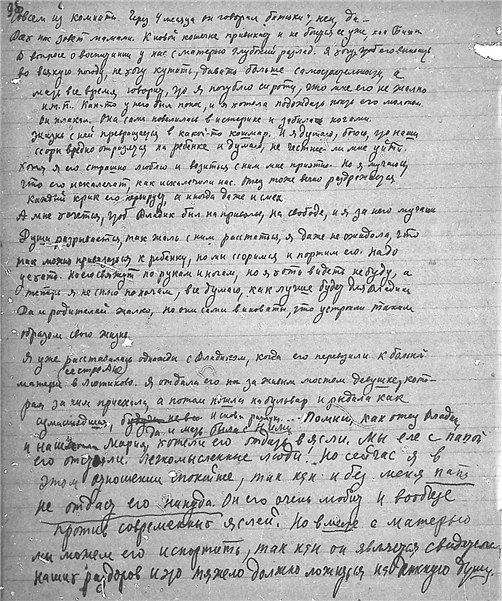 Совсем из комнаты. Через 4 месяца он говорил батюки!, нен, да. —
Всех нас зовет мамами. К новой кошке привыкну и не боится ее уже, как
В вопросе о воспитании у нас с матерью глубокий разлад. Я хочу
во всякую погоду, не хочу кутать, давать больше самостоятельности, а
мать все время говорит, что я погублю сироту, что мне его не жалко
и т.п. Как-то у него был понос, и я хотела подождать поить его молоком.
Он плакал. Она сама повалилась в истерике и забила ногами.
Жизнь с ней превращается в какой-то кошмар. И я думаю, боюсь, что наши
ссоры вредно отразятся на ребенке и думаю, не честнее ли мне уйти.
Хотя я его страшно люблю и возиться с ним мне приятно. Но я мучаюсь,
что его искалечат как искалечили нас. Отец тоже вечно раздражается
Каждый крик его нервирует, а иногда даже и смех
А мне хочется, чтоб Владик был на приволье, на свободе, и я за него мучаюсь
Душа разрывается, так жаль с ним расстаться, я даже не ожидала, что
так можно привязаться к ребенку, но мы ссоримся и портим его. Надо
уехать. Носа свяжут по рукам и ногам, но я хоть видеть не буду, а
теперь я не сплю по ночам, все думаю, как лучше будет для Владика
Да и родителей жалко, но они сами виноваты, что устроили таким
образом свою жизнь.
Я уже рассталась однажды с Владиком, когда его перевозили к больной
сестре
матери в Люпиково. Я отдала его на за живым мостом девушке, кот-
рая за ним приехала, а потом пошла на бульвар и рыдала как
сумасшедшая, и снова разлука... Помню, как отец Владика,
и наша Мария, хотели его отдать в ясли. Мы еле с папой
его отстояли. Легкомысленные люди! Но сейчас я в
этом отношении спокойнее, так как и без меня папа
не отдаст его никуда. Он его очень любит и вообще
против современных яслей. Но вместе с матерью
мы можем его испортить, так как он является свидетелем
наших раздоров и это тяжело должно ложиться на детскую душу.